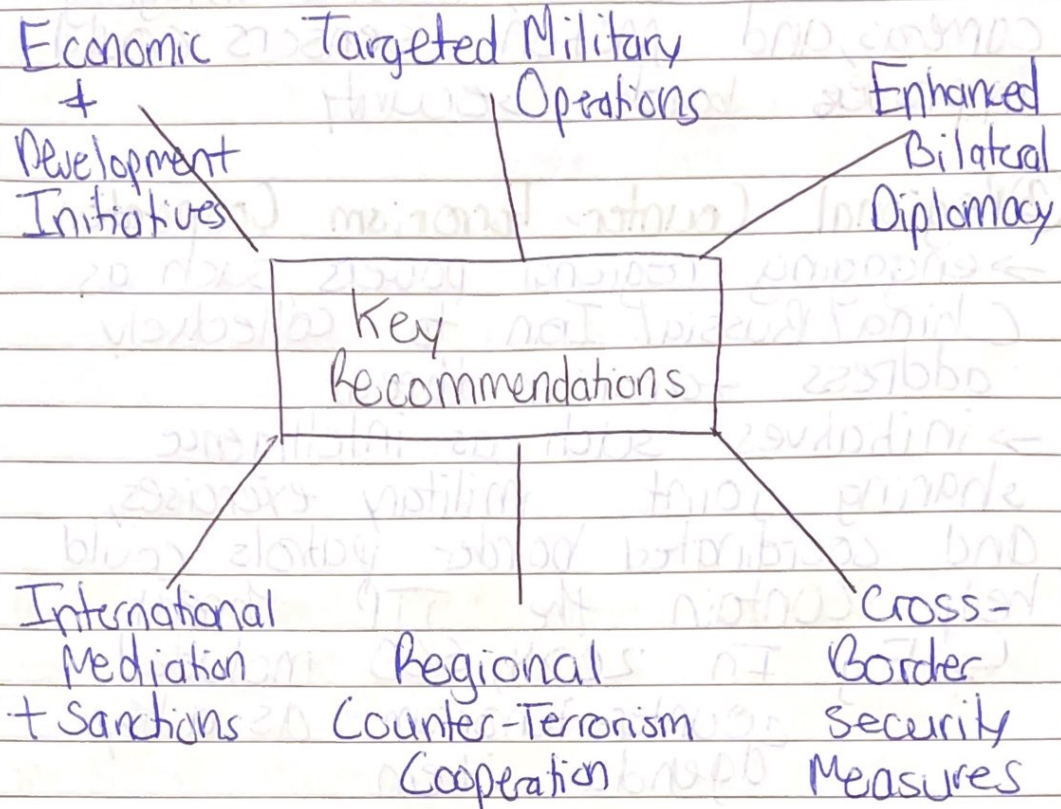 Economic
+
Development
Initiatives
Targeted Military
Operations
Enhanced
Bilateral
Diplomacy
Key
Recommendations
International
Mediation
+ Sanctions
Regional
Counter-Terrorism
Cooperation
Cross-
Border
Security
Measures